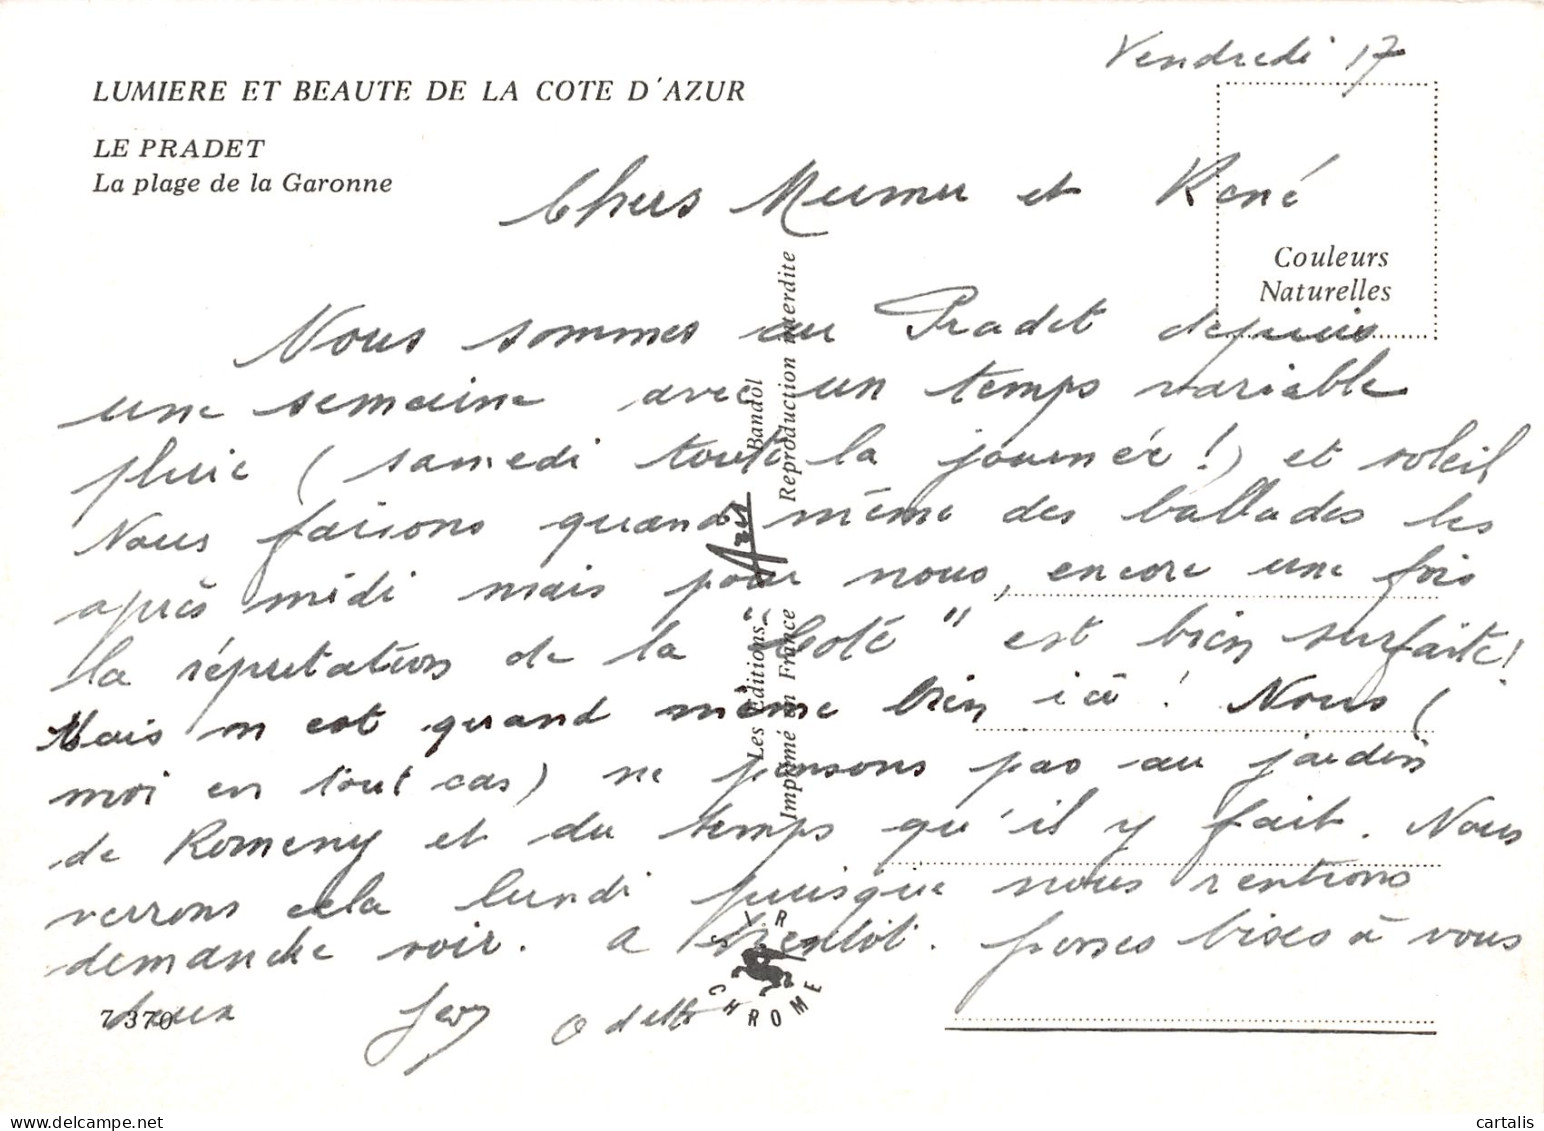 Vendredi 17
LUMIERE ET BEAUTE DE LA COTE D'AZUR
LE PRADET
La plage de la Garonne
Chers Mumu et René
Couleurs
Naturelles
Nous sommes au Pradet depuis
une semaine avec un temps variable
pluie (samedi toute la journée!) et soleil
Nous faisons quand même des ballades les
après midi mais pour nous, encore une fois
la réputation de la "Cote" est bien surfaite!
Mais on est quand même bien ici! Nous (
moi en tout cas) ne pensons pas au jardin
de Romeny et du temps qu'il y fait. Nous
verrons cela lundi puisque nous rentrons
demanche soir. A bientôt. Grosses bises à vous
deux Odette
7 370
Les Editions Azur Bandol
Imprimé en France Reproduction interdite
SIRCHROME
cartalis